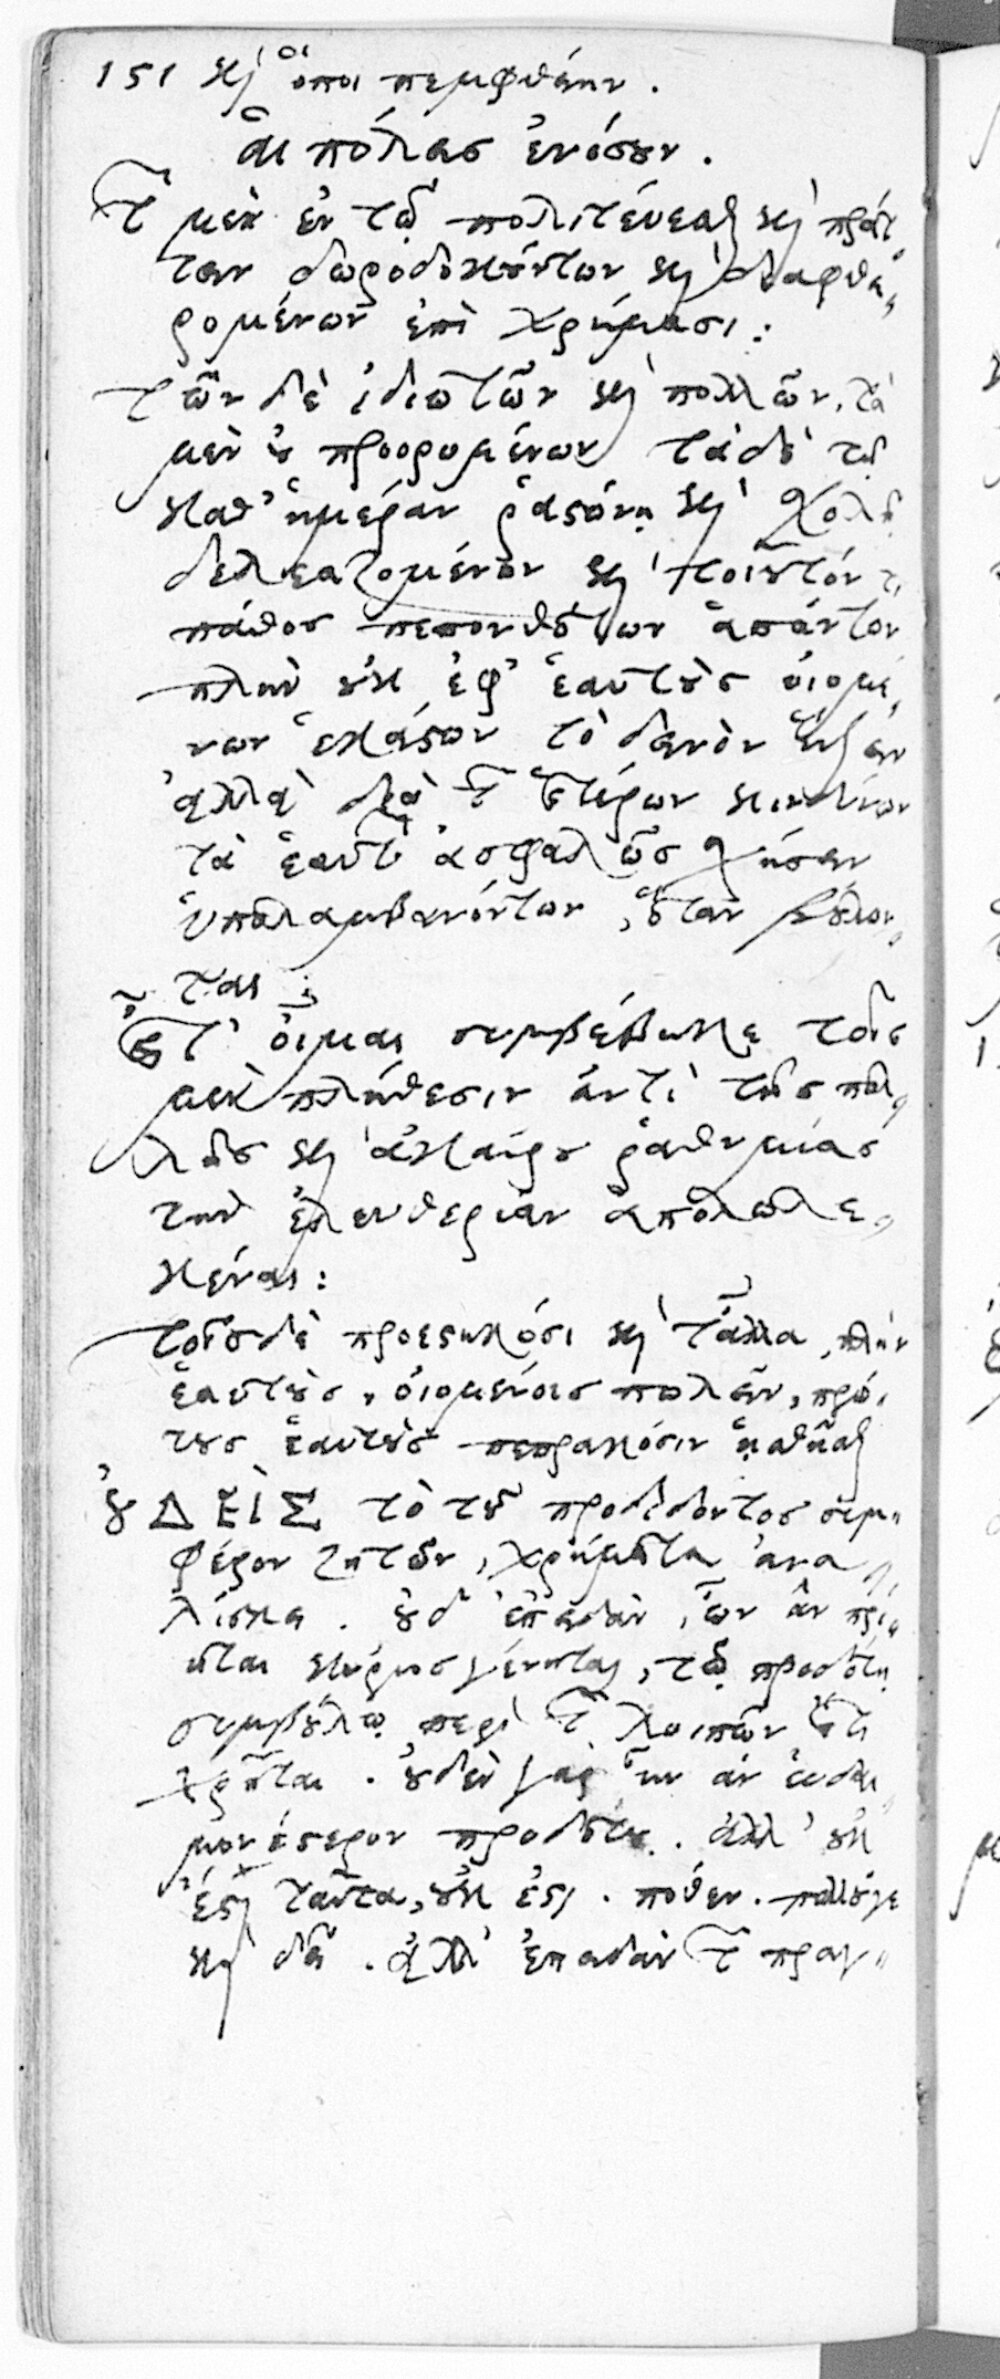 151 καὶ ὅποι πεμφθείην.
αἱ πόλεις ἐνόσουν.
τῶν μὲν ἐν τῷ πολιτεύεσθαι καὶ πράτ-
τειν δωροδοκούντων καὶ διαφθει-
ρομένων ἐπὶ χρήμασι:
τῶν δὲ ἰδιωτῶν καὶ πολλῶν, τὰ
μὲν οὐ προορωμένων τὰ δὲ τῇ
καθ' ἡμέραν ῥᾳστώνῃ καὶ σχολῇ
δελεαζομένων καὶ τοιουτόν τι
πάθος πεπονθότων ἁπάντων
πλὴν οὐκ ἐφ' ἑαυτοὺς οἰομέ-
νων ἑκάστων τὸ δεινὸν ἥξειν
ἀλλὰ διὰ τῶν ἑτέρων κινδύνων
τὰ ἑαυτῶν ἀσφαλῶς σχήσειν
ὑπολαμβανόντων, ὅταν βούλων-
ται:
εἶτ' οἶμαι συμβέβηκε τοῖς
μὲν πλήθεσιν ἀντὶ τῆς πολ-
λῆς καὶ ἀκαίρου ῥαθυμίας
τὴν ἐλευθερίαν ἀπολωλε-
κέναι:
τοῖς δὲ προεστηκόσι καὶ τἆλλα, πλὴν
ἑαυτοὺς, οἰομένοις πωλεῖν, πρώ-
τους ἑαυτοὺς πεπρακόσιν ᾐσθῆσθαι
οὐΔΕῚΣ τὸ τοῦ προδιδόντος συμ-
φέρον ζητῶν, χρήματα ἀνα-
λίσκει. οὐδ' ἐπειδὰν, ὧν ἂν πρί-
ηται κύριος γένηται, τῷ προδότῃ
συμβούλῳ περὶ τῶν λοιπῶν ἔτι
χρῆται. οὐδὲν γὰρ ἦν ἂν εὐδαι-
μονέστερον προδότου. ἀλλ' οὐκ
ἔστι ταῦτα, οὐκ ἔστι. πόθεν. πολλοῦ γε
καὶ δεῖ. ἀλλ' ἐπειδὰν τῶν πραγ-